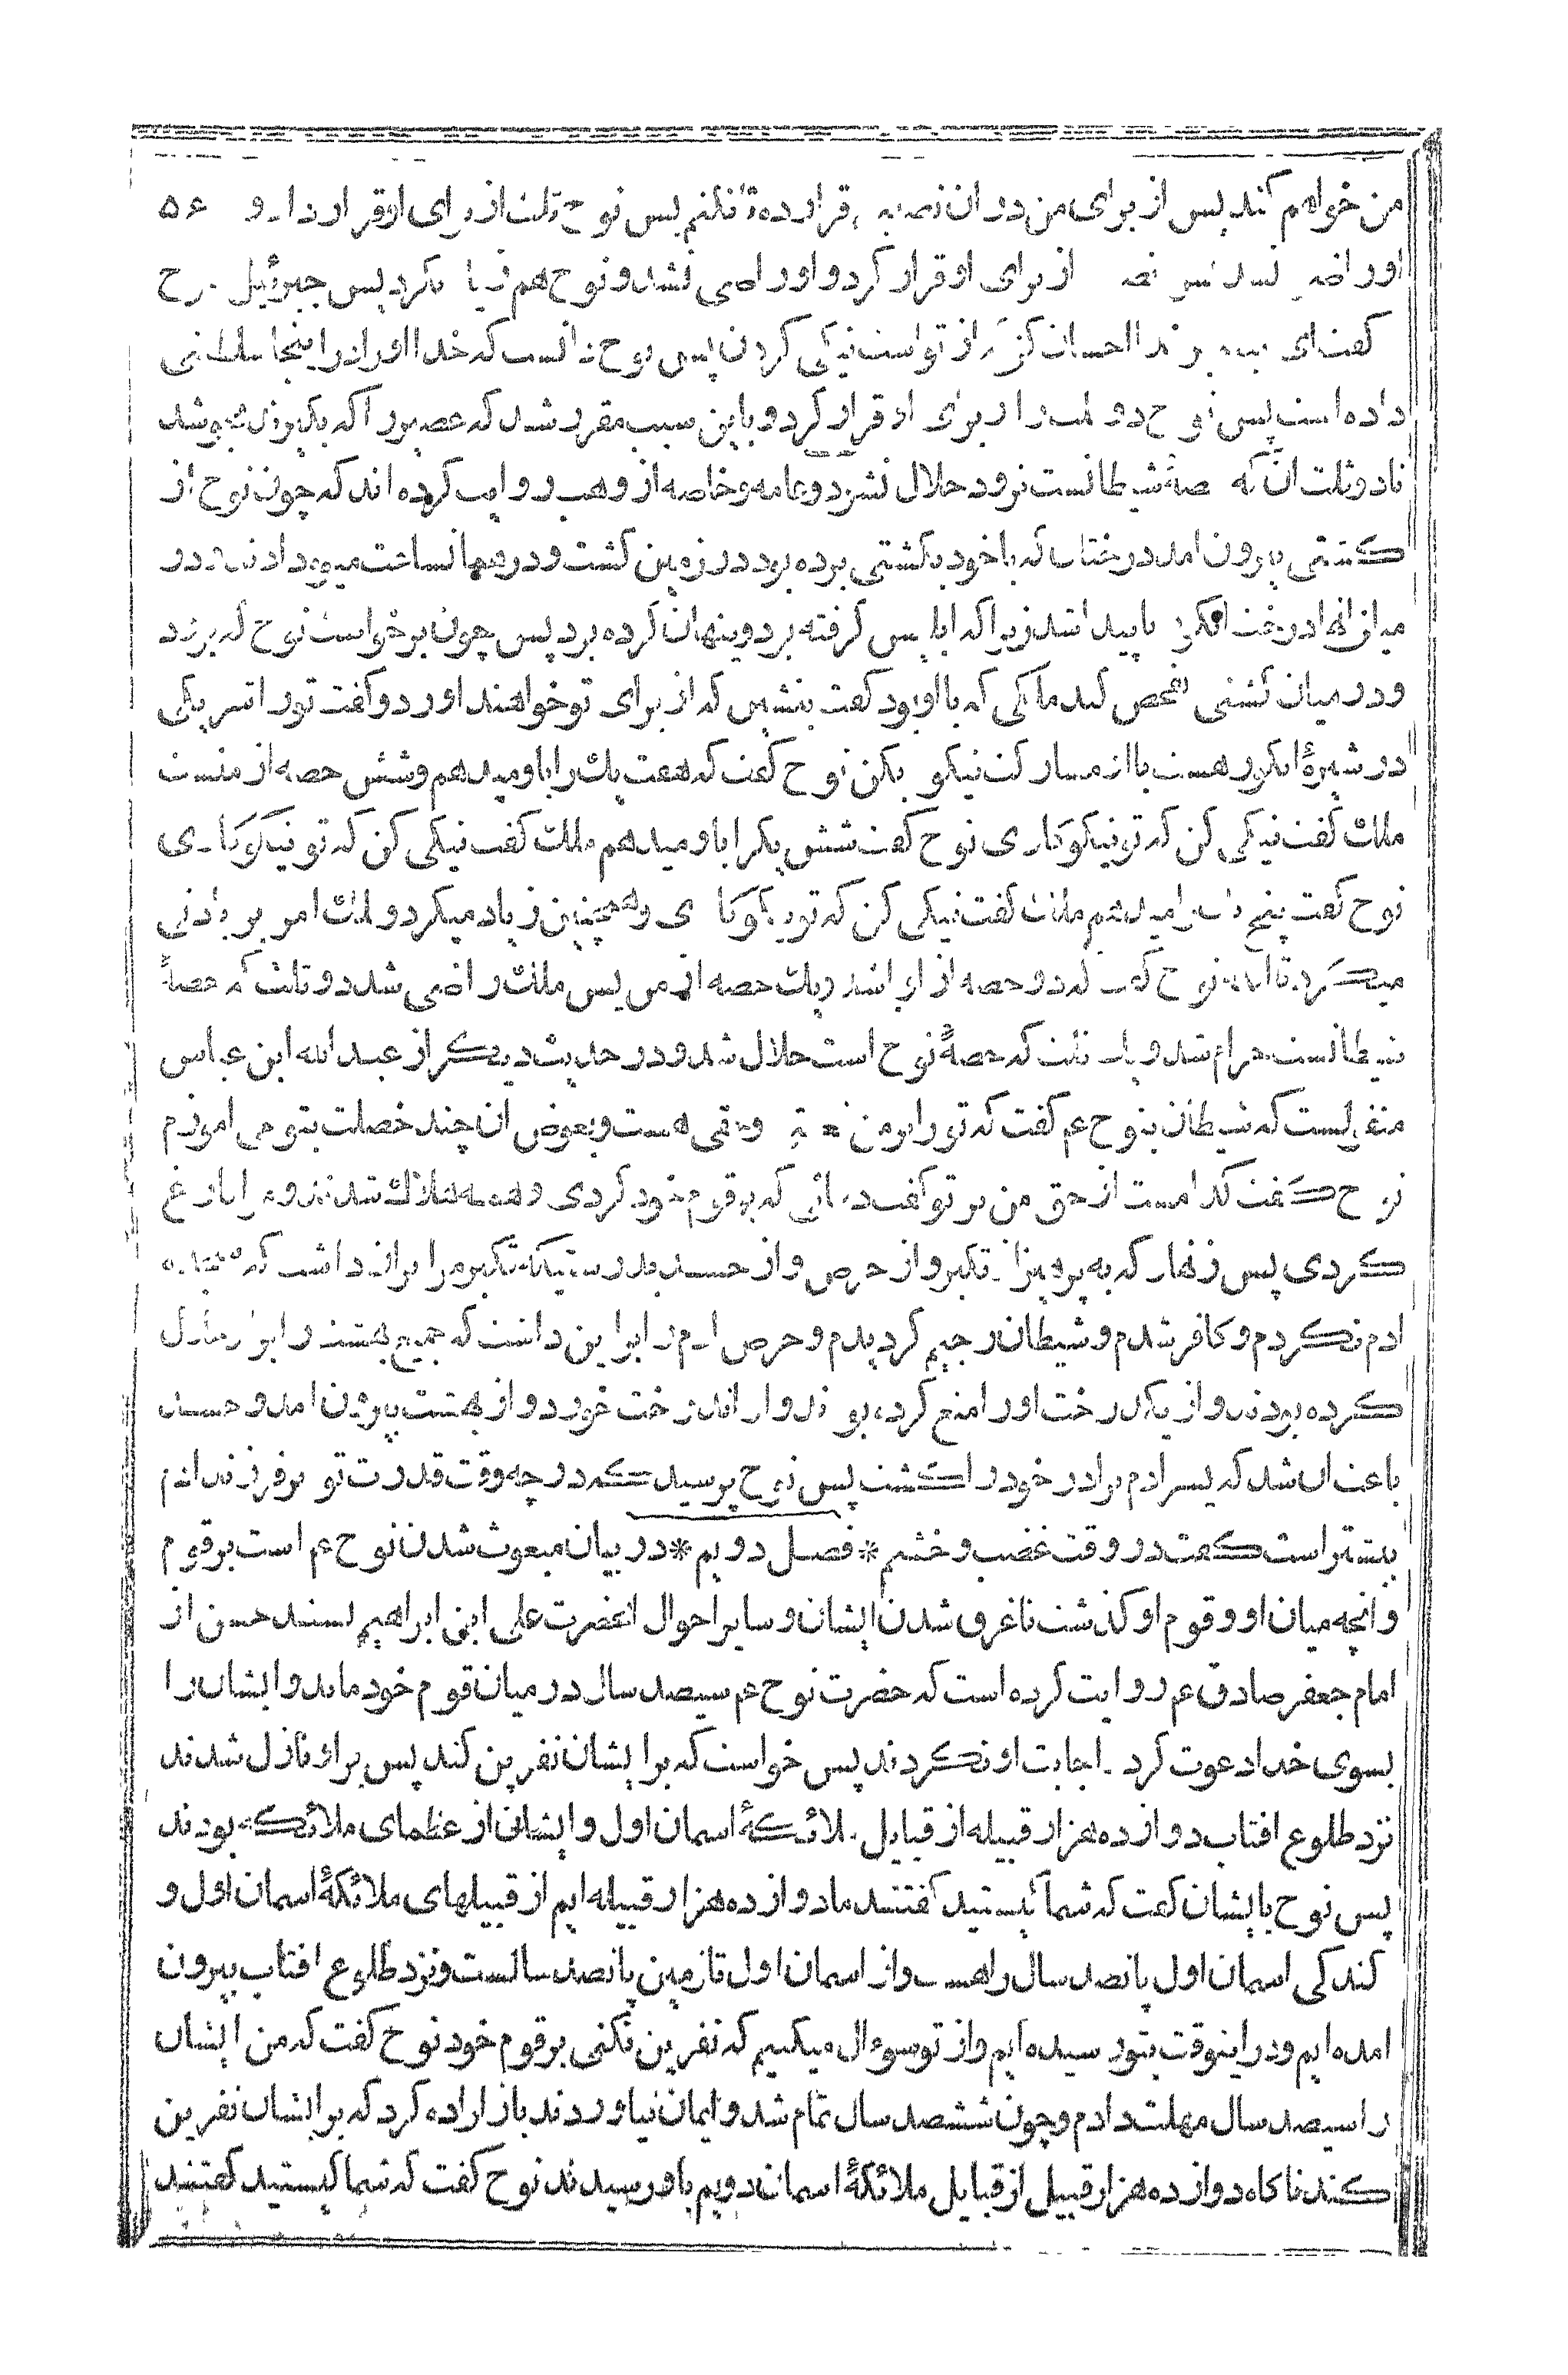 من خواهم کند پس از برای من در ان قرار ده تا نکنم پس نوح ثلث از برای او قرار داد و ۵۶
او راضی نشد پس از برای او قرار کرد و او راضی نشد و نوح هم زیاد نکرد پس جبرئیل
کفت ای احسان کن که از تو است نیکی کردن پس نوح دانست که خدا او را در اینجا سلطنتی
داده است پس نوح دو ثلث را از برای او قرار کرد و باین سبب مقرر شد که عصیر را که بکیرند و بجوشد
تا دو ثلث ان که حصهٔ شیطانست نرود حلال نشود و عامه و خاصه از وهب روایت کرده اند که چون نوح از
کشتی بیرون امد درختان که با خود بکشتی برده بود در زمین کشت و در همانساعت میوه دادند و در
میان انها درخت انکور ناپیدا شد زیرا که ابلیس کرفته بود و پنهان کرده بود پس چون برخواست نوح که برود
و در میان کشتی تفحص کند ملکی که با او بود کفت بنشین که از برای تو خواهند اورد و کفت تو را شریکی
در شیرهٔ انکور هست با او مشارکت نیکو بکن نوح کفت که هفت یک را باو میدهم و شش حصه از منست
ملک کفت نیکی کن که تو نیکوکاری نوح کفت شش یک را باو میدهم ملک کفت نیکی کن که تو نیکوکاری
نوح کفت پنج یک را میدهم ملک کفت نیکی کن که تو نیکوکاری و همچنین زیاد میکرد و ملک امر بزیادتی
میکرد تا انکه نوح کفت که دو حصه از او باشد و یک حصه از من پس ملک راضی شد دو ثلث که حصهٔ
شیطانست حرام شد و یک ثلث که حصهٔ نوح است حلال شد و در حدیث دیکر از عبد الله ابن عباس
منقولست که شیطان بنوح عم کفت که تو را بر من نعمتی و حقی هست و بعوض ان چند خصلت بتو می اموزم
نوح کفت کدامست از حق من بر تو کفت دعائی که بر قوم خود کردی و همه هلاک شدند و مرا فارغ
کردی پس زنهار که به پرهیز از تکبر و از حرص و از حسد بدرستیکه تکبر مرا بران داشت که سجده
ادم نکردم و کافر شدم و شیطان رجیم کردیدم و حرص ادم را بر این داشت که جمیع بهشت را بر او حلال
کرده بودند و از یکدرخت او را منع کرده بودند و از اندرخت خورد و از بهشت بیرون امد و حسد
باعث ان شد که پسر ادم برادر خود را کشت پس نوح پرسید که در چه وقت قدرت تو بر فرزند ادم
بیشتر است کفت در وقت غضب و خشم * فصل دویم * در بیان مبعوث شدن نوح عم است بر قوم
و انچه میان او و قوم او کذشت تا غرق شدن ایشان و سایر احوال انحضرت علی ابن ابراهیم بسند حسن از
امام جعفر صادق عم روایت کرده است که حضرت نوح عم سیصد سال در میان قوم خود ماند و ایشان را
بسوی خدا دعوت کرد اجابت او نکردند پس خواست که بر ایشان نفرین کند پس بر او نازل شدند
نزد طلوع افتاب دوازده هزار قبیله از قبایل ملائکهٔ اسمان اول و ایشان از عظمای ملائکه بودند
پس نوح بایشان کفت که شما کیستید کفتند ما دوازده هزار قبیله ایم از قبیلهای ملائکهٔ اسمان اول و
کندکی اسمان اول پانصد سال راهست و از اسمان اول تا زمین پانصد سالست و نزد طلوع افتاب بیرون
امده ایم و در اینوقت بتو رسیده ایم و از تو سوءال میکنیم که نفرین نکنی بر قوم خود نوح کفت که من ایشان
را سیصد سال مهلت دادم و چون ششصد سال تمام شد و ایمان نیاوردند باز اراده کرد که بر ایشان نفرین
کند ناکاه دوازده هزار قبیل از قبایل ملائکهٔ اسمان دویم باو رسیدند نوح کفت که شما کیستید کفتند